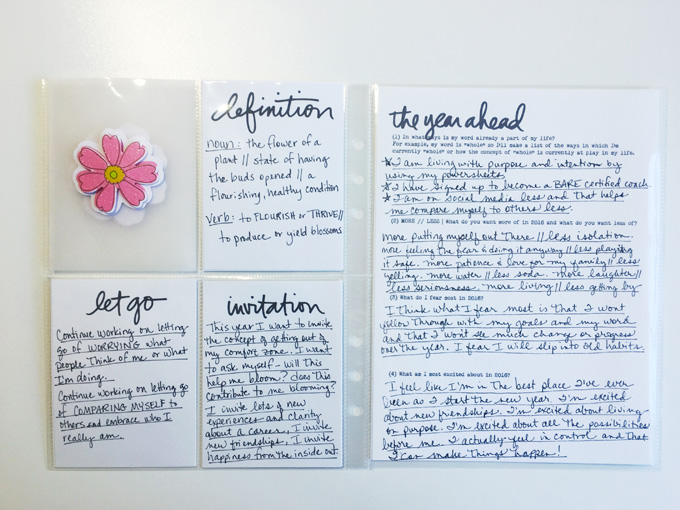 definition
noun: the flower of a
plant // state of having
the buds opened // a
flourishing, healthy condition
verb: to FLOURISH or THRIVE //
to produce or yield blossoms
let go
Continue working on letting
go of WORRYING what
people think of me or what
I'm doing.
Continue working on letting go
of COMPARING MYSELF to
others and embrace who I
really am.
invitation
This year I want to invite
the concept of getting out of
my comfort zone. I want
to ask myself - will this
help me bloom? does this
contribute to me blooming?
I invite lots of new
experiences and clarity
about a career, I invite
new friendships, I invite
happiness from the inside out.
the year ahead
(1) In what ways is my word already a part of my life?
For example, my word is "whole" so I'll make a list of the ways in which I'm
currently "whole" or how the concept of "whole" is currently at play in my life.
★ I am living with purpose and intention by
using my powersheets.
★ I have signed up to become a BARE certified coach.
★ I am on social media less and that helps
me compare myself to others less.
(2) MORE // LESS | What do you want more of in 2016 and what do you want less of?
more putting myself out there // less isolation.
more feeling the fear & doing it anyway // less playing
it safe. more patience & love for my family // less
yelling. more water // less soda. more laughter //
less seriousness. more living // less getting by
(3) What do I fear most in 2016?
I think what I fear most is that I won't
follow through with my goals and my word
and that I won't see much change or progress
over the year. I fear I will slip into old habits.
(4) What am I most excited about in 2016?
I feel like I'm in the best place I've ever
been as I start the new year. I'm excited
about new friendships. I'm excited about living
on purpose. I'm excited about all the possibilities
before me. I actually feel in control and that
I can make things happen!